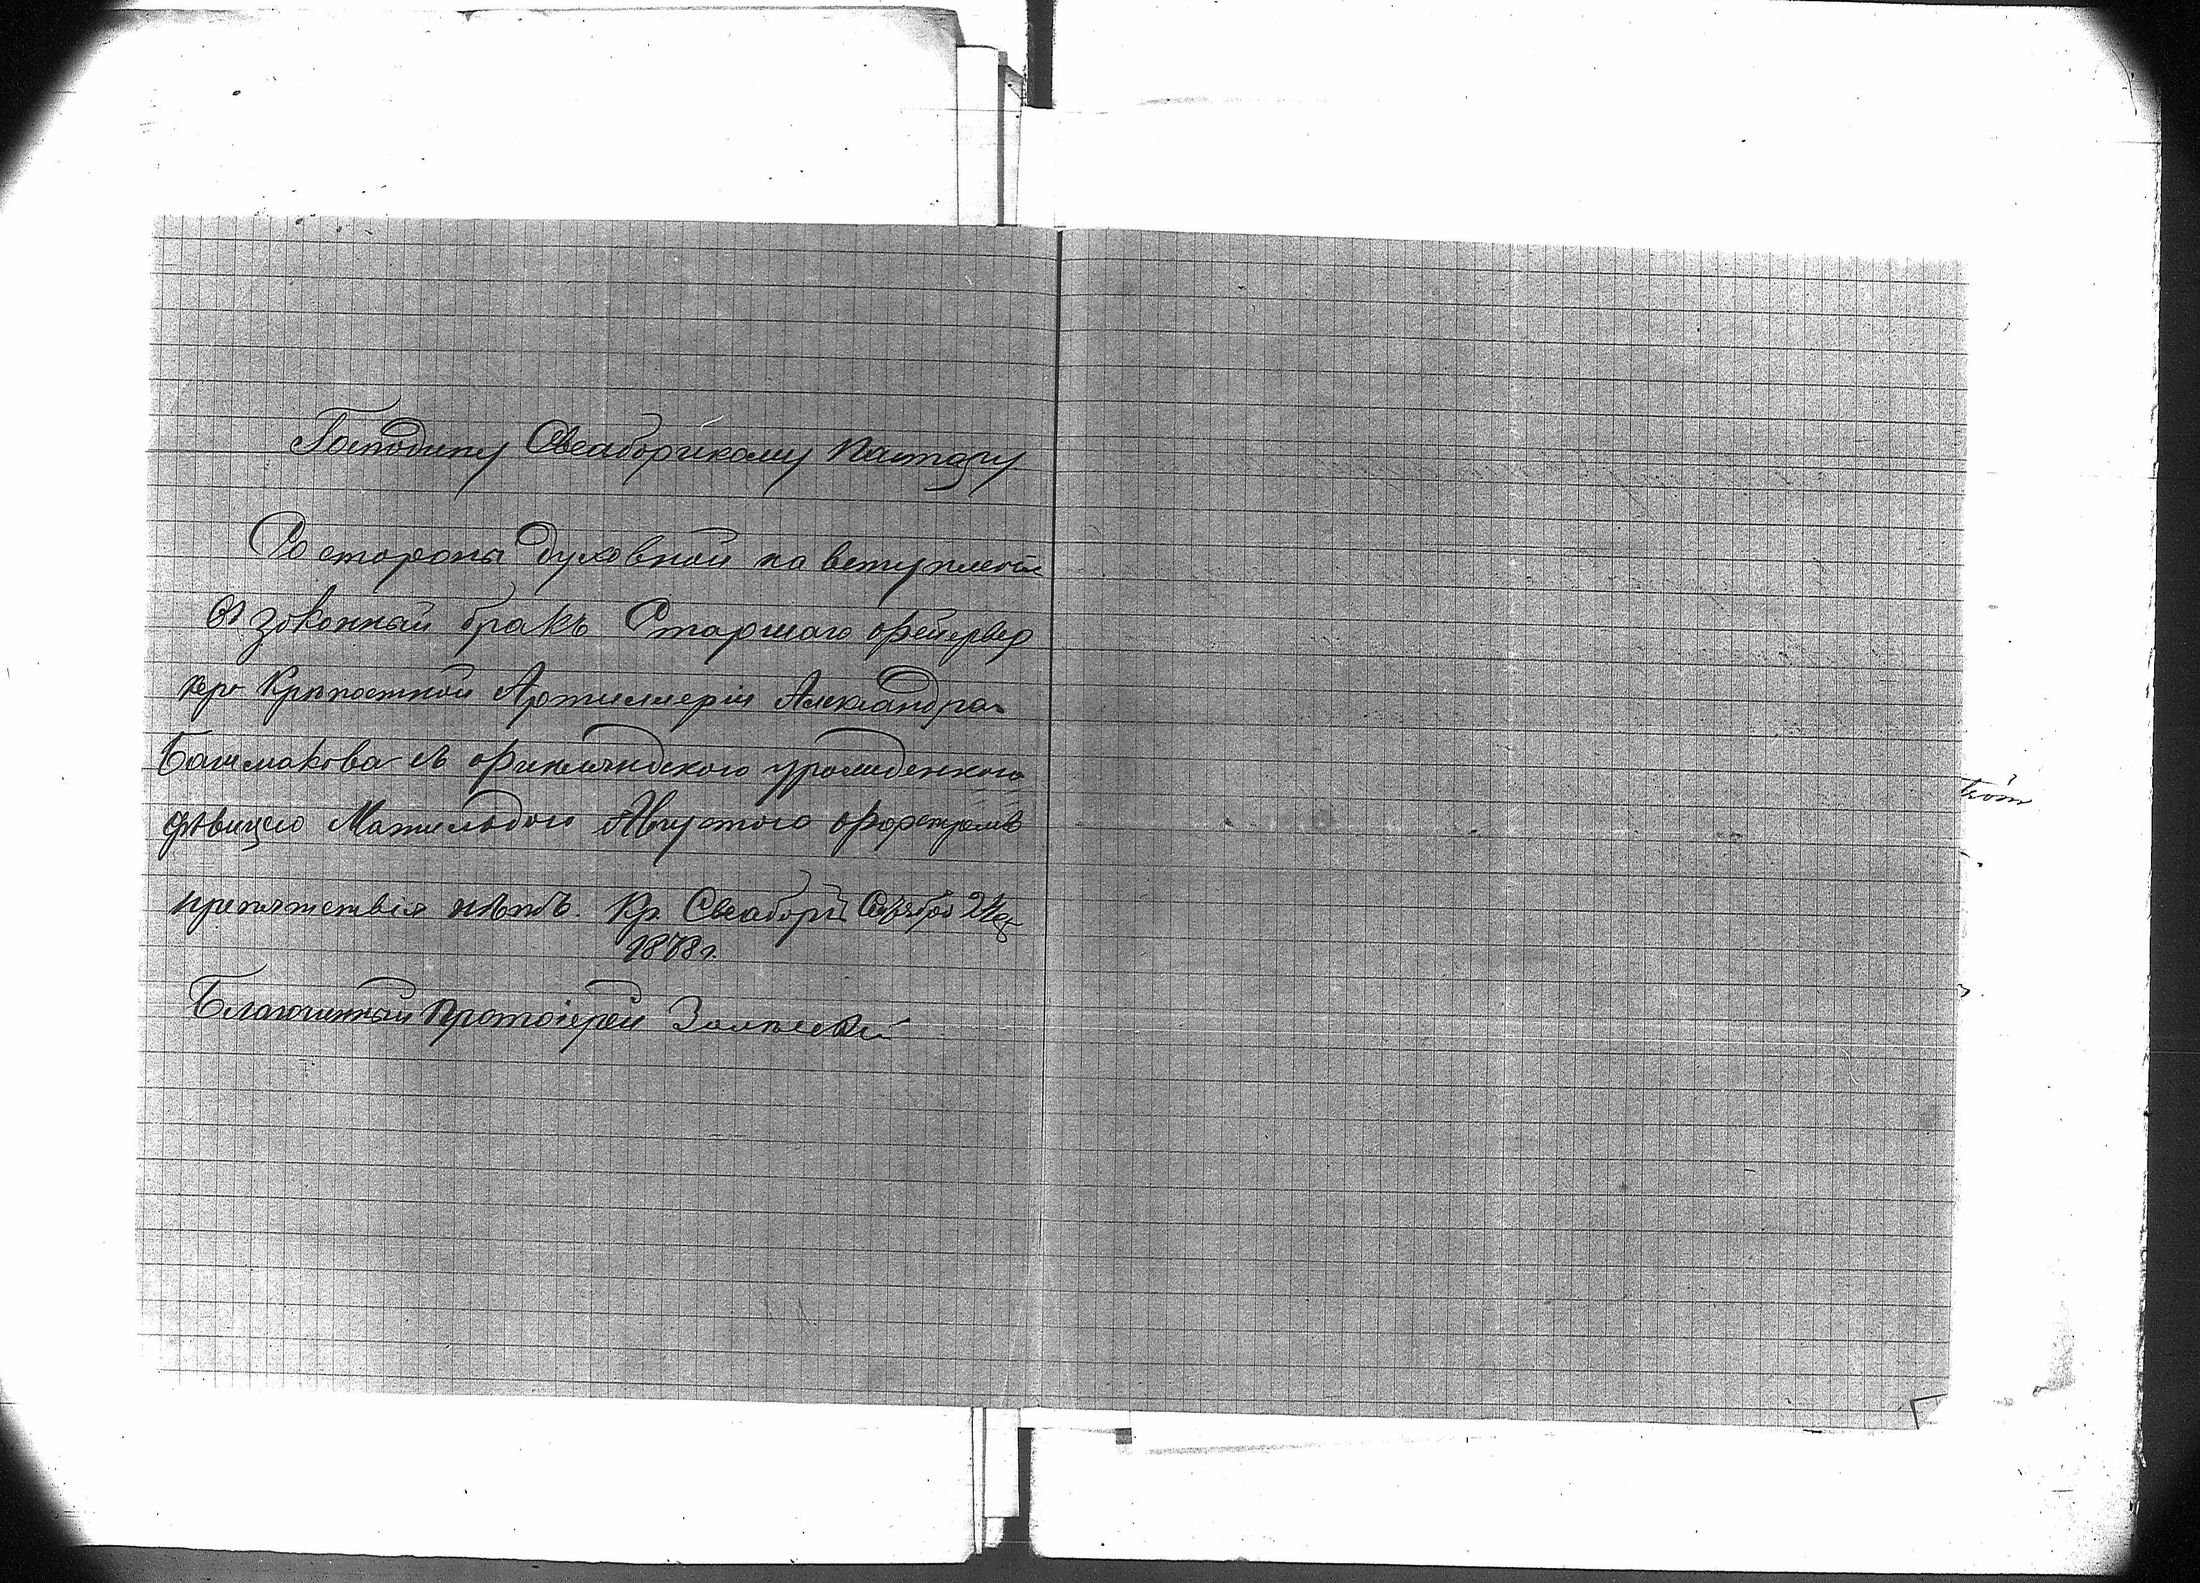 Господину Свеаборгскому Пастору
Со стороны духовной на вступленіе
въ законный бракъ Старшаго Фейервер
кера Крѣпостной Артиллеріи Александра
Башмакова съ финляндскою уроженкою
дѣвицею Матильдою Августою
препятствія нѣтъ. Кр. Свеаборгъ 24
1878 г.
Благочинный Протоіерей